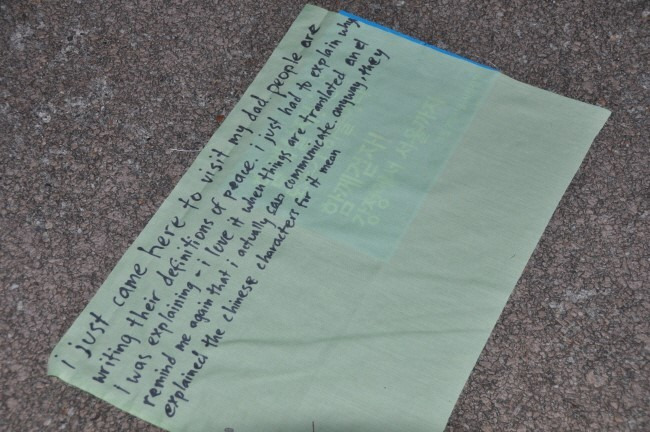 i just came here to visit my dad people are
writing their definitions of peace. i just had to explain why
I was explaining - i love it when things are translated and
remind me again that i actually can communicate. anyway, they
explained the chinese characters for it mean